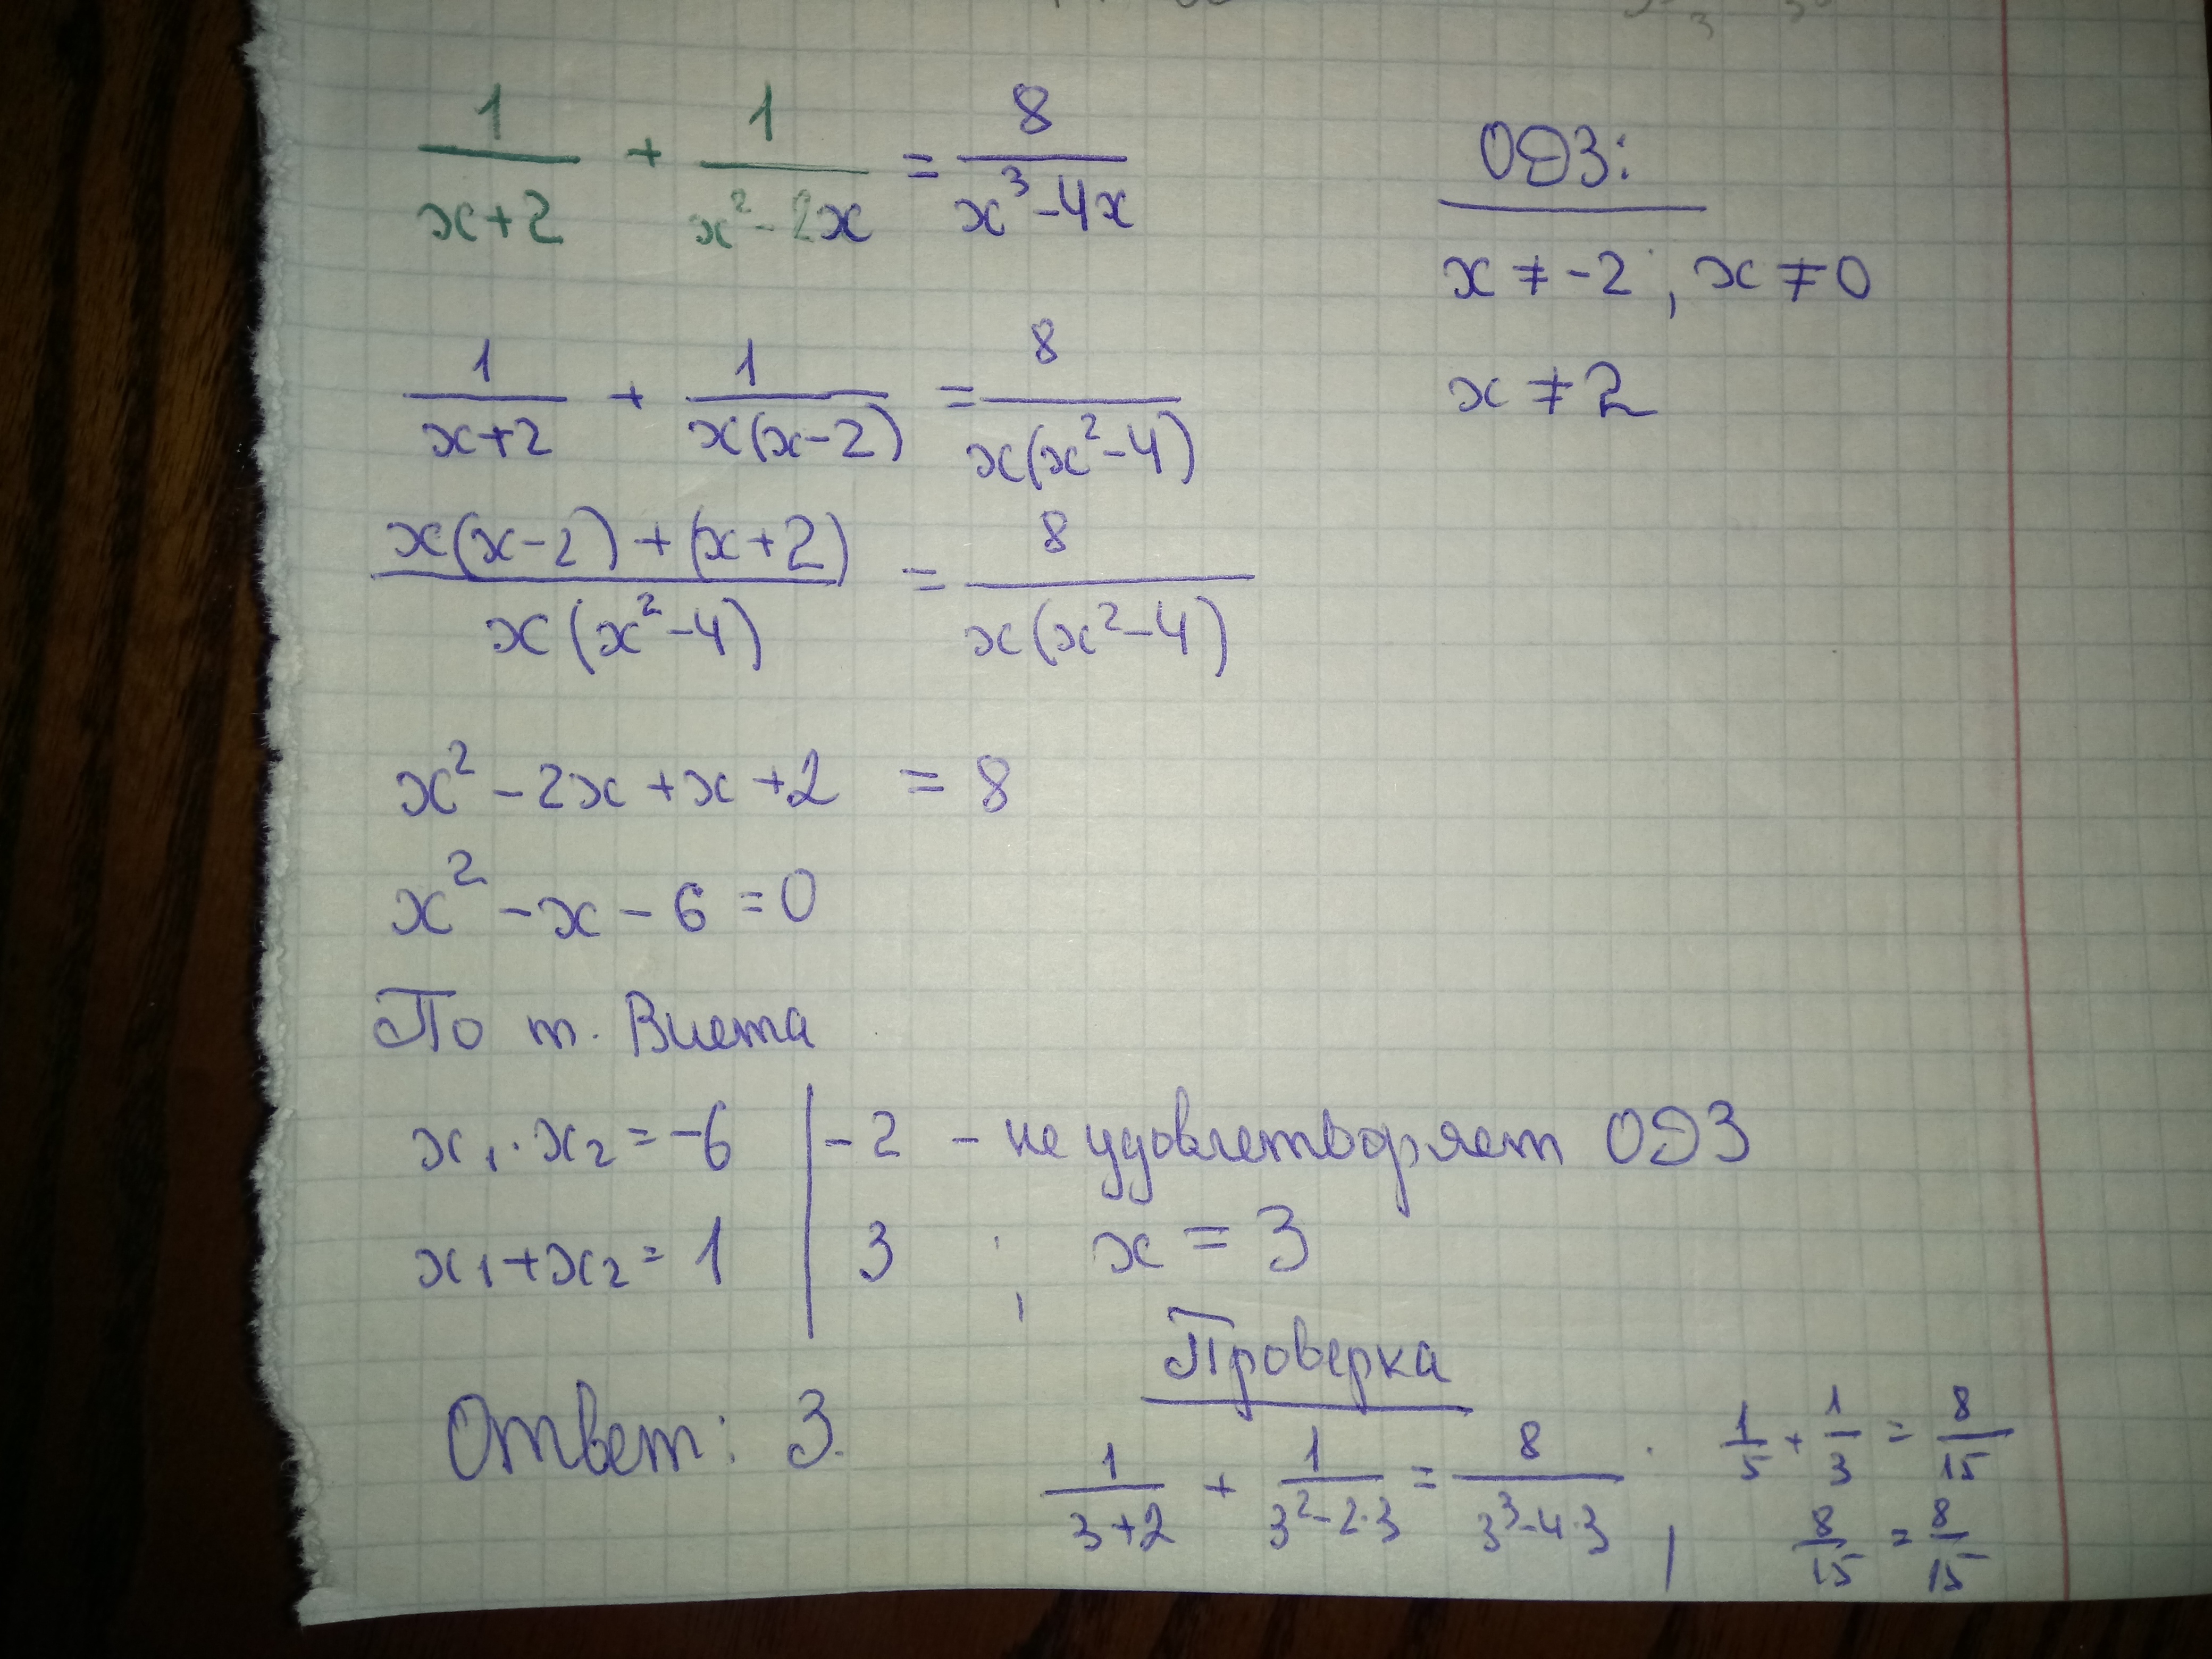 1/(x+2) + 1/(x²-2x) = 8/(x³-4x)
ОДЗ:
x ≠ -2, x ≠ 0
x ≠ 2
1/(x+2) + 1/(x(x-2)) = 8/(x(x²-4))
(x(x-2)+(x+2))/(x(x²-4)) = 8/(x(x²-4))
x² - 2x + x + 2 = 8
x² - x - 6 = 0
По т. Виета
x₁·x₂ = -6 | -2 - не удовлетворяет ОДЗ
x₁+x₂ = 1 | 3 ; x = 3
Ответ: 3.
Проверка
1/(3+2) + 1/(3²-2·3) = 8/(3³-4·3) ; 1/5 + 1/3 = 8/15
8/15 = 8/15